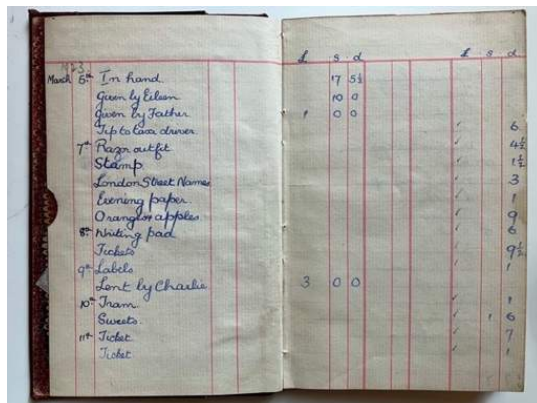 £ s d £ s d
1923
March 6th In hand 17 5½
Given by Eileen 10 0
Given by Father 1 0 0
Tip to taxi driver 6
7th Razor outfit 4½
Stamp 1½
London Street Names 3
Evening paper 1
Oranges apples 9
8th Writing pad 6
Tickets 9½
9th Labels 1
Lent by Charlie 3 0 0
10th Tram 1
Sweets 1 6
11th Ticket 7
Ticket 1